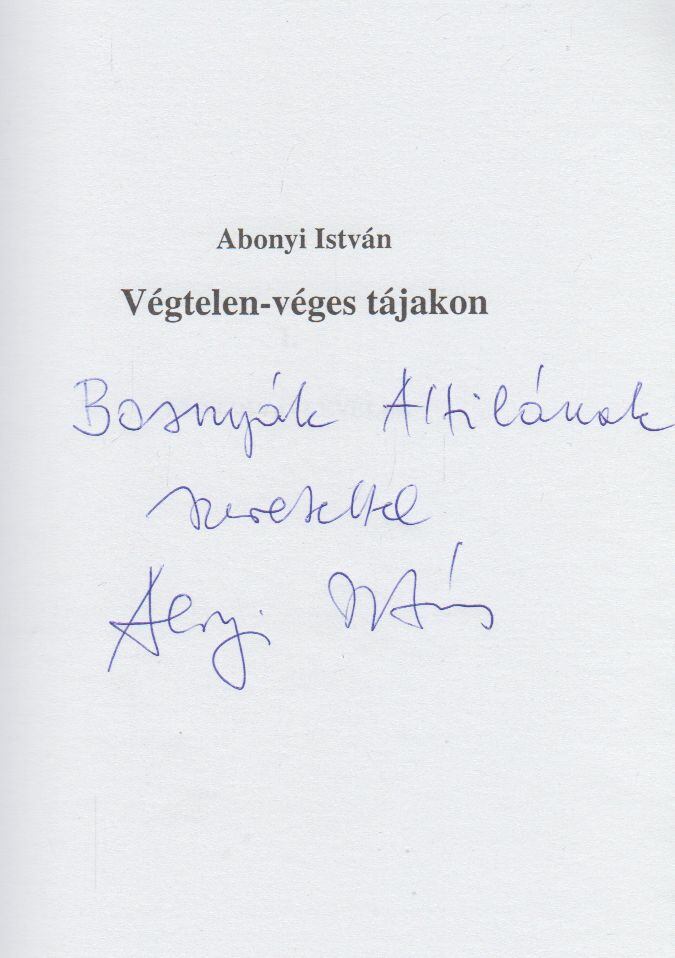 Abonyi István
Végtelen-véges tájakon
Bosnyák Attilának
szeretettel
Abonyi István